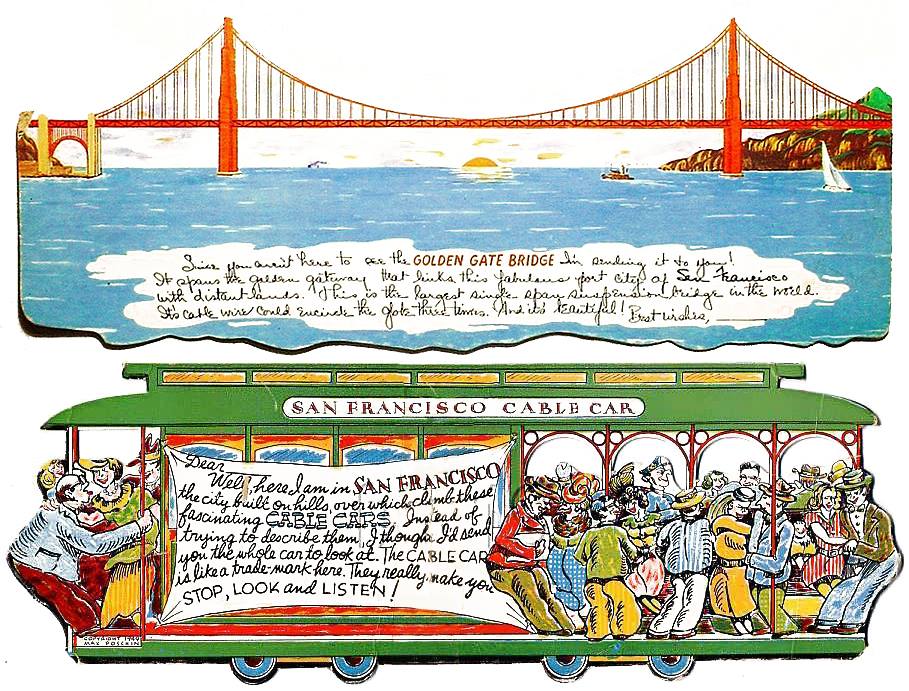 Since you aren't here to see the GOLDEN GATE BRIDGE I'm sending it to you!
It spans the golden gateway that links this fabulous port city of San Francisco
with distant lands. This is the largest single span suspension bridge in the world.
Its cable wire could encircle the globe three times. And it's beautiful! Best wishes,
SAN FRANCISCO CABLE CAR
Dear
Well here I am in SAN FRANCISCO
the city built on hills, over which climb these
fascinating CABLE CARS. Instead of
trying to describe them, I thought I'd send
you the whole car to look at. The CABLE CAR
is like a trade-mark here. They really make you
STOP, LOOK and LISTEN!
COPYRIGHT
MAX POSCHIN